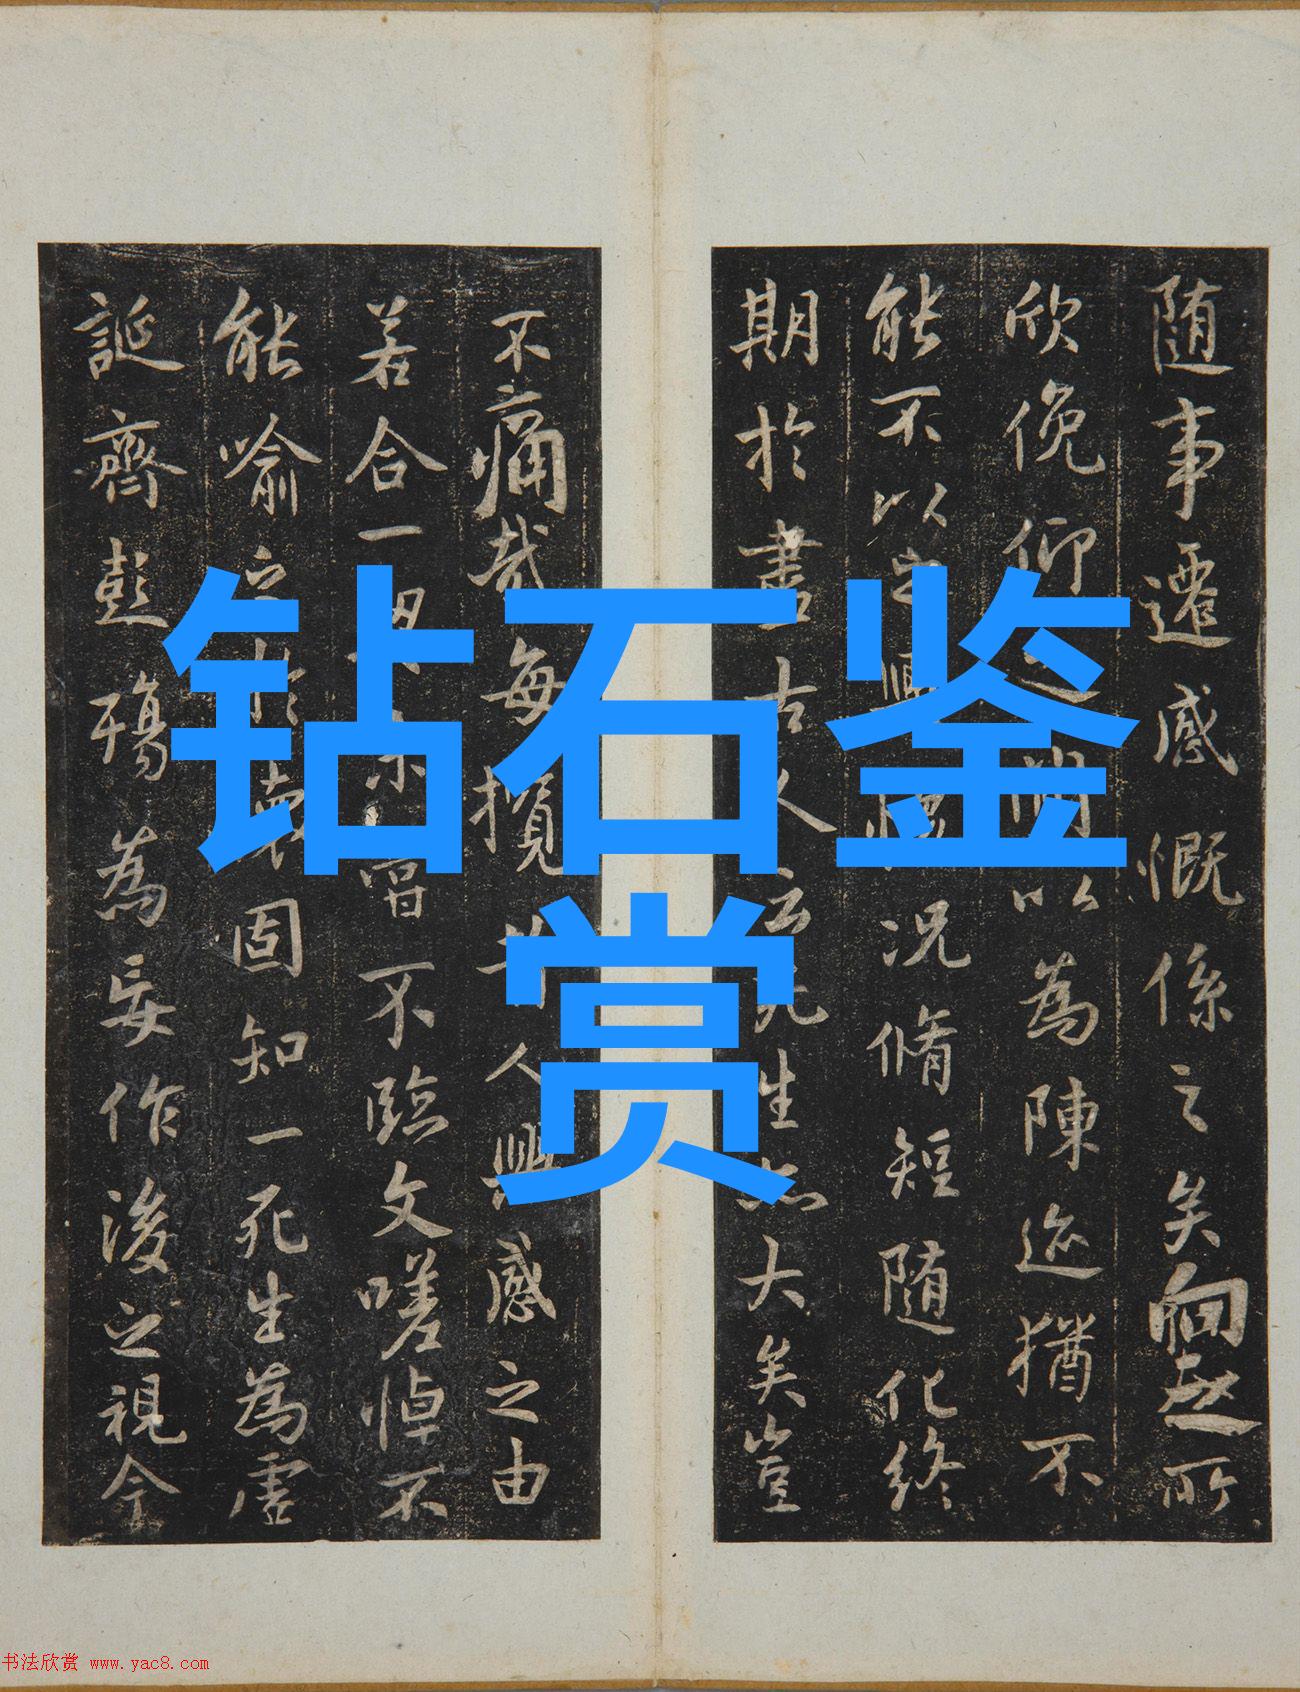 钻石鉴
赏
随事遷感慨係之矣向之所
欣俛仰之閒以為陳迹猶不
能不以之興懷況脩短随化終
期於盡古人云死生亦大矣豈
不痛哉每攬昔人興感之由
若合一契未嘗不臨文嗟悼不
能喻之於懷固知一死生為虛
誕齊彭殤為妄作後之視今
书法欣赏 www.yac8.com